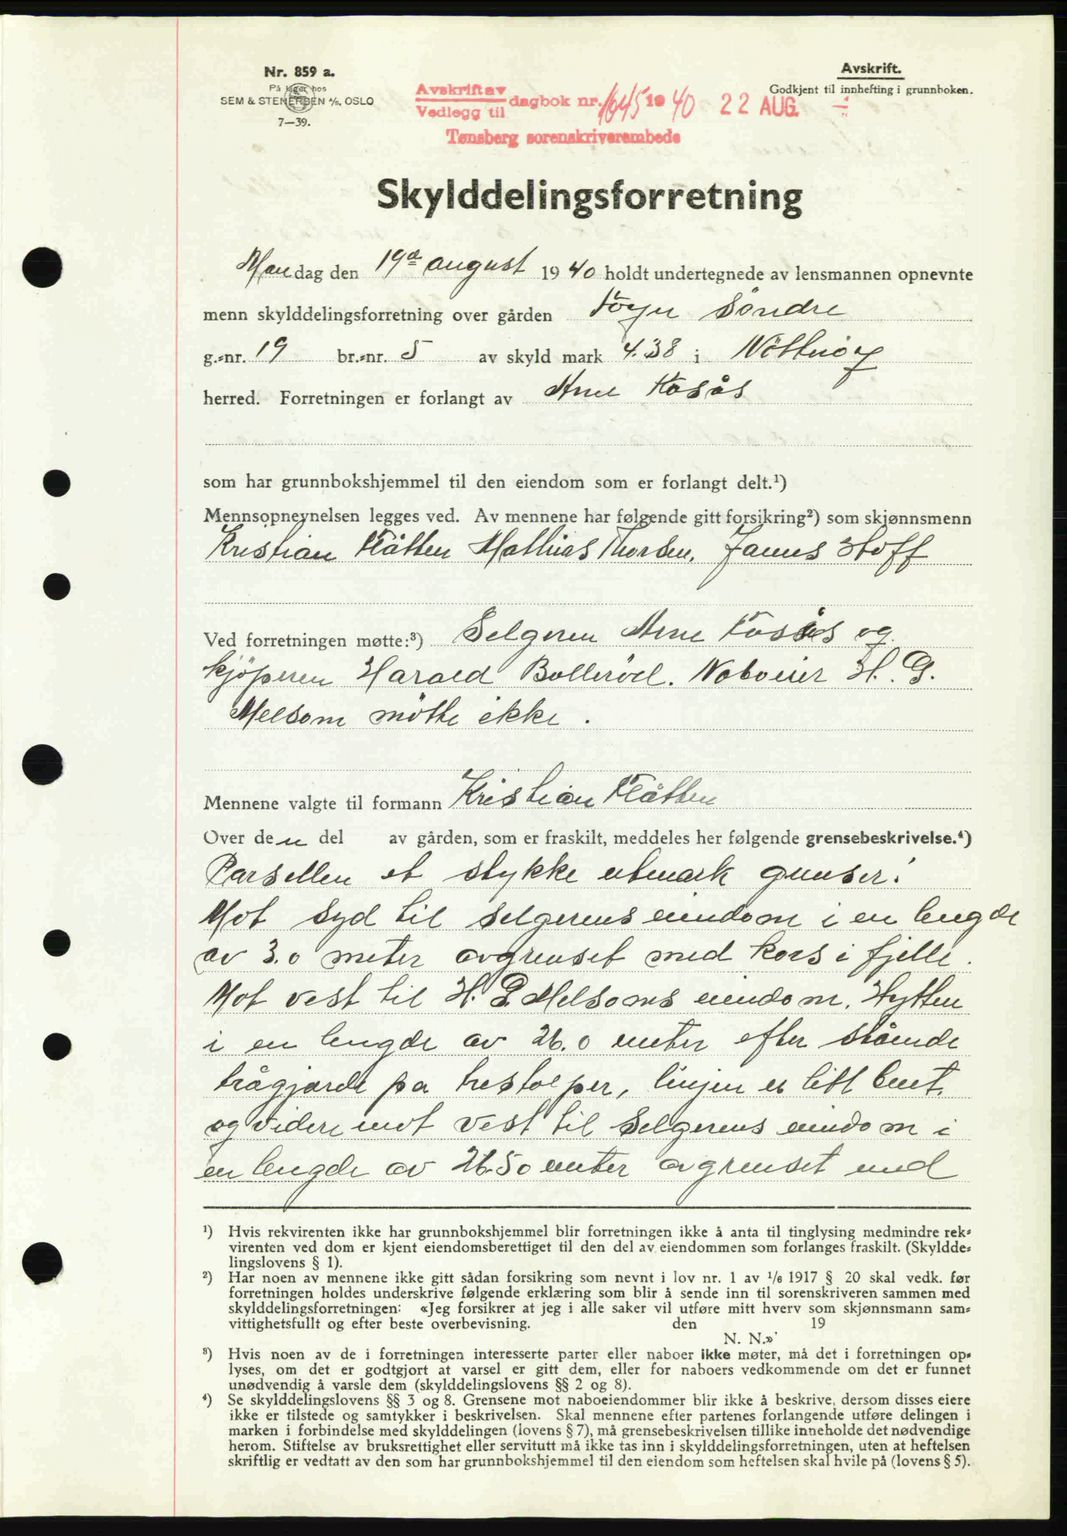 Nr. 859 a.
På lager hos
SEM & STENERSEN A/S, OSLO
7—39.
Avskrift.
Godkjent til innhefting i grunnboken.
Avskrift av
Vedlegg til dagbok nr. 1645 1940 22 AUG.
Tønsberg sorenskriverembede
Skylddelingsforretning
Mandag den 19de august 1940 holdt undertegnede av lensmannen opnevnte
menn skylddelingsforretning over gården Föyn Söndre
g.-nr. 19 br.-nr. 5 av skyld mark 4.38 i Nötteröy
herred. Forretningen er forlangt av Arne Kosås
som har grunnbokshjemmel til den eiendom som er forlangt delt.¹)
Mennsopnevnelsen legges ved. Av mennene har følgende gitt forsikring²) som skjønnsmenn
Kristian Flåtten Mathias Thorsen, James Hoff
Ved forretningen møtte:³) Selgeren Arne Kosås og
kjöperen Harald Bolleröd. Naboeier H. G.
Melsom mötte ikke.
Mennene valgte til formann Kristian Flåtten
Over den del av gården, som er fraskilt, meddeles her følgende grensebeskrivelse.⁴)
Parsellen et stykke utmark grenser:
Mot syd til selgerens eiendom i en lengde
av 3.0 meter avgrenset med kors i fjelle.
Mot vest til H. G Melsoms eiendom, Hytten
i en lengde av 26.0 meter efter stående
trågjærde på trestolper, linjen er litt buet,
og videre mot vest til Selgerens eiendom i
en lengde av 26.50 meter avgrenset med
¹) Hvis rekvirenten ikke har grunnbokshjemmel blir forretningen ikke å anta til tinglysing medmindre rek-
virenten ved dom er kjent eiendomsberettiget til den del av eiendommen som forlanges fraskilt. (Skyldde-
lingslovens § 1).
²) Har noen av mennene ikke gitt sådan forsikring som nevnt i lov nr. 1 av 1/6 1917 § 20 skal vedk. før
forretningen holdes underskrive følgende erklæring som blir å sende inn til sorenskriveren sammen med
skylddelingsforretningen: «Jeg forsikrer at jeg i alle saker vil utføre mitt hverv som skjønnsmann sam-
vittighetsfullt og efter beste overbevisning. den 19
N. N.»
³) Hvis noen av de i forretningen interesserte parter eller naboer ikke møter, må det i forretningen op-
lyses, om det er godtgjort at varsel er gitt dem, eller for naboers vedkommende om det er funnet
unødvendig å varsle dem (skylddelingslovens §§ 2 og 8).
⁴) Se skylddelingslovens §§ 3 og 8. Grensene mot naboeiendommer blir ikke å beskrive, dersom disses eiere
ikke er tilstede og samtykker i beskrivelsen. Skal mennene efter partenes forlangende utføre delingen i
marken i forbindelse med skylddelingen (lovens § 7), må grensebeskrivelsen tillike inneholde det nødvendige
herom. Stiftelse av bruksrettighet eller servitutt må ikke tas inn i skylddelingsforretningen, uten at heftelsen
skriftlig er vedtatt av den som har grunnbokshjemmel til den eiendom som heftelsen skal hvile på (lovens § 5).